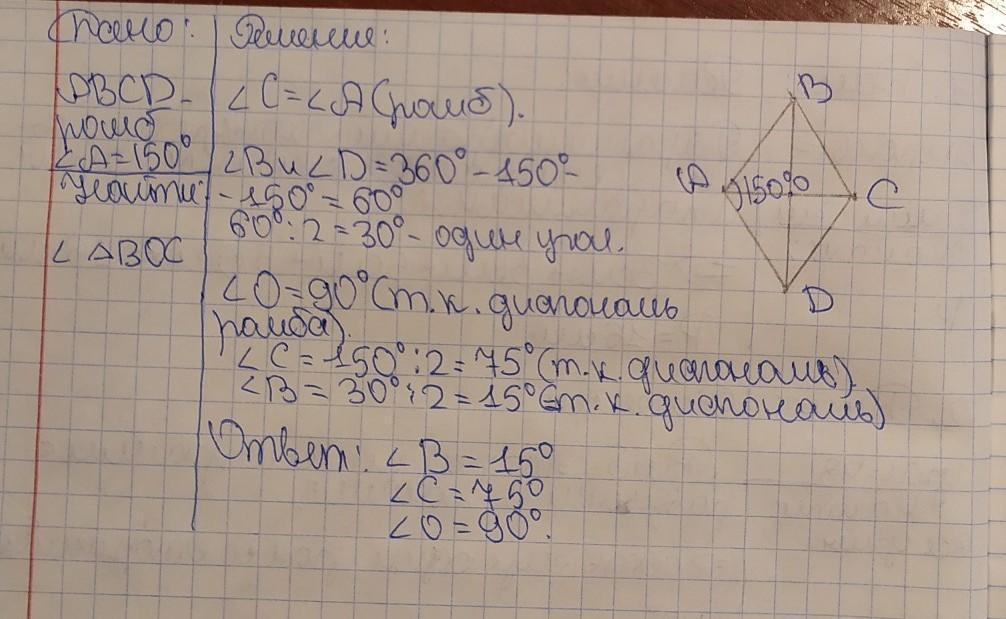 Дано:
Решение:
ABCD -
ромб
∠A=150°
Найти:
∠ △BOC
∠C=∠A(ромб).
∠B и ∠D=360°-150°-
-150°=60°
60°:2=30°- один угол.
∠O=90°(т.к. диагональ
ромба).
∠C=150°:2=75°(т.к. диагональ)
∠B=30°:2=15°(т.к. диагональ)
Ответ: ∠B=15°
∠C=75°
∠O=90°.
B
A
150°
O
C
D